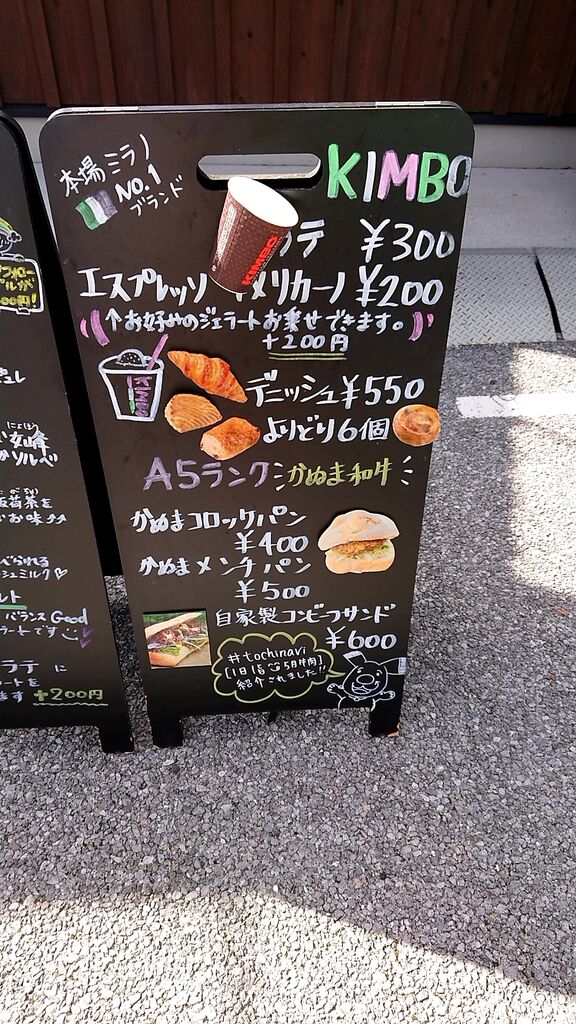 本場ミラノ
NO.1
ブランド
KIMBO
KIMBO
テ ¥300
エスプレッソ メリカーノ ¥200
↑お好みのジェラートお乗せできます。
+200円
KIMBO
デニッシュ¥550
よりどり6個
A5ランク かぬま和牛
かぬまコロッケパン
¥400
かぬまメンチパン
¥500
自家製コンビーフサンド
¥600
#tochinavi
紹介されました!!
フォロー
にょほう
女峰
ソルベ
お味↑↑
べられる
ミルク♡
バランス Good
ラートです
ラテ に
ートを
ます +200円